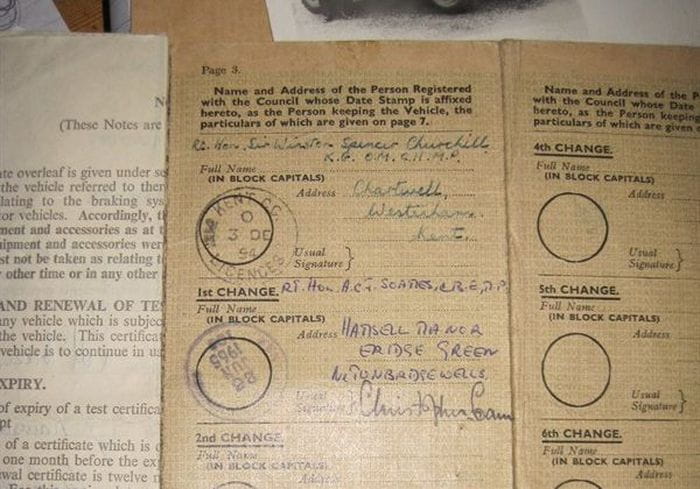 N
(These Notes are
ate overleaf is given under se
the vehicle referred to ther
lating to the braking sys
or vehicles. Accordingly, t
ment and accessories as at t
uipment and accessories wer
st not be taken as relating t
other time or in any other
AND RENEWAL OF TES
any vehicle which is subjec
the vehicle. This certificat
vehicle is to continue in us
XPIRY.
of expiry of a test certifica
pt
of a certificate which is
one month before the exp
wal certificate is twelve n
Page 3.
Name and Address of the Person Registered
with the Council whose Date Stamp is affixed
hereto, as the Person keeping the Vehicle, the
particulars of which are given on page 7.
Rt. Hon. Sir Winston Spencer Churchill
K.G. O.M. C.H. M.P.
Full Name
(IN BLOCK CAPITALS)
Address Chartwell,
Westerham.
Kent.
KENT C.C.
O
3 DE
54
LICENCES
Usual
Signature}
1st CHANGE. RT. HON. A.C.J. SOAMES, C.B.E., M.P.
Full Name
(IN BLOCK CAPITALS)
Address HAMSELL MANOR
ERIDGE GREEN
Nr TUNBRIDGE WELLS
JUN 1965
Usual
Signature Christopher Soames
2nd CHANGE
Full Name
(IN BLOCK CAPITALS)
Address
Name and Address of the P
with the Council whose Date
hereto, as the Person keeping
particulars of which are given
4th CHANGE.
Full Name
(IN BLOCK CAPITALS)
Address
Usual
Signature}
5th CHANGE.
Full Name
(IN BLOCK CAPITALS)
Address
Usual
Signature}
6th CHANGE.
Full Name
(IN BLOCK CAPITALS)
Address